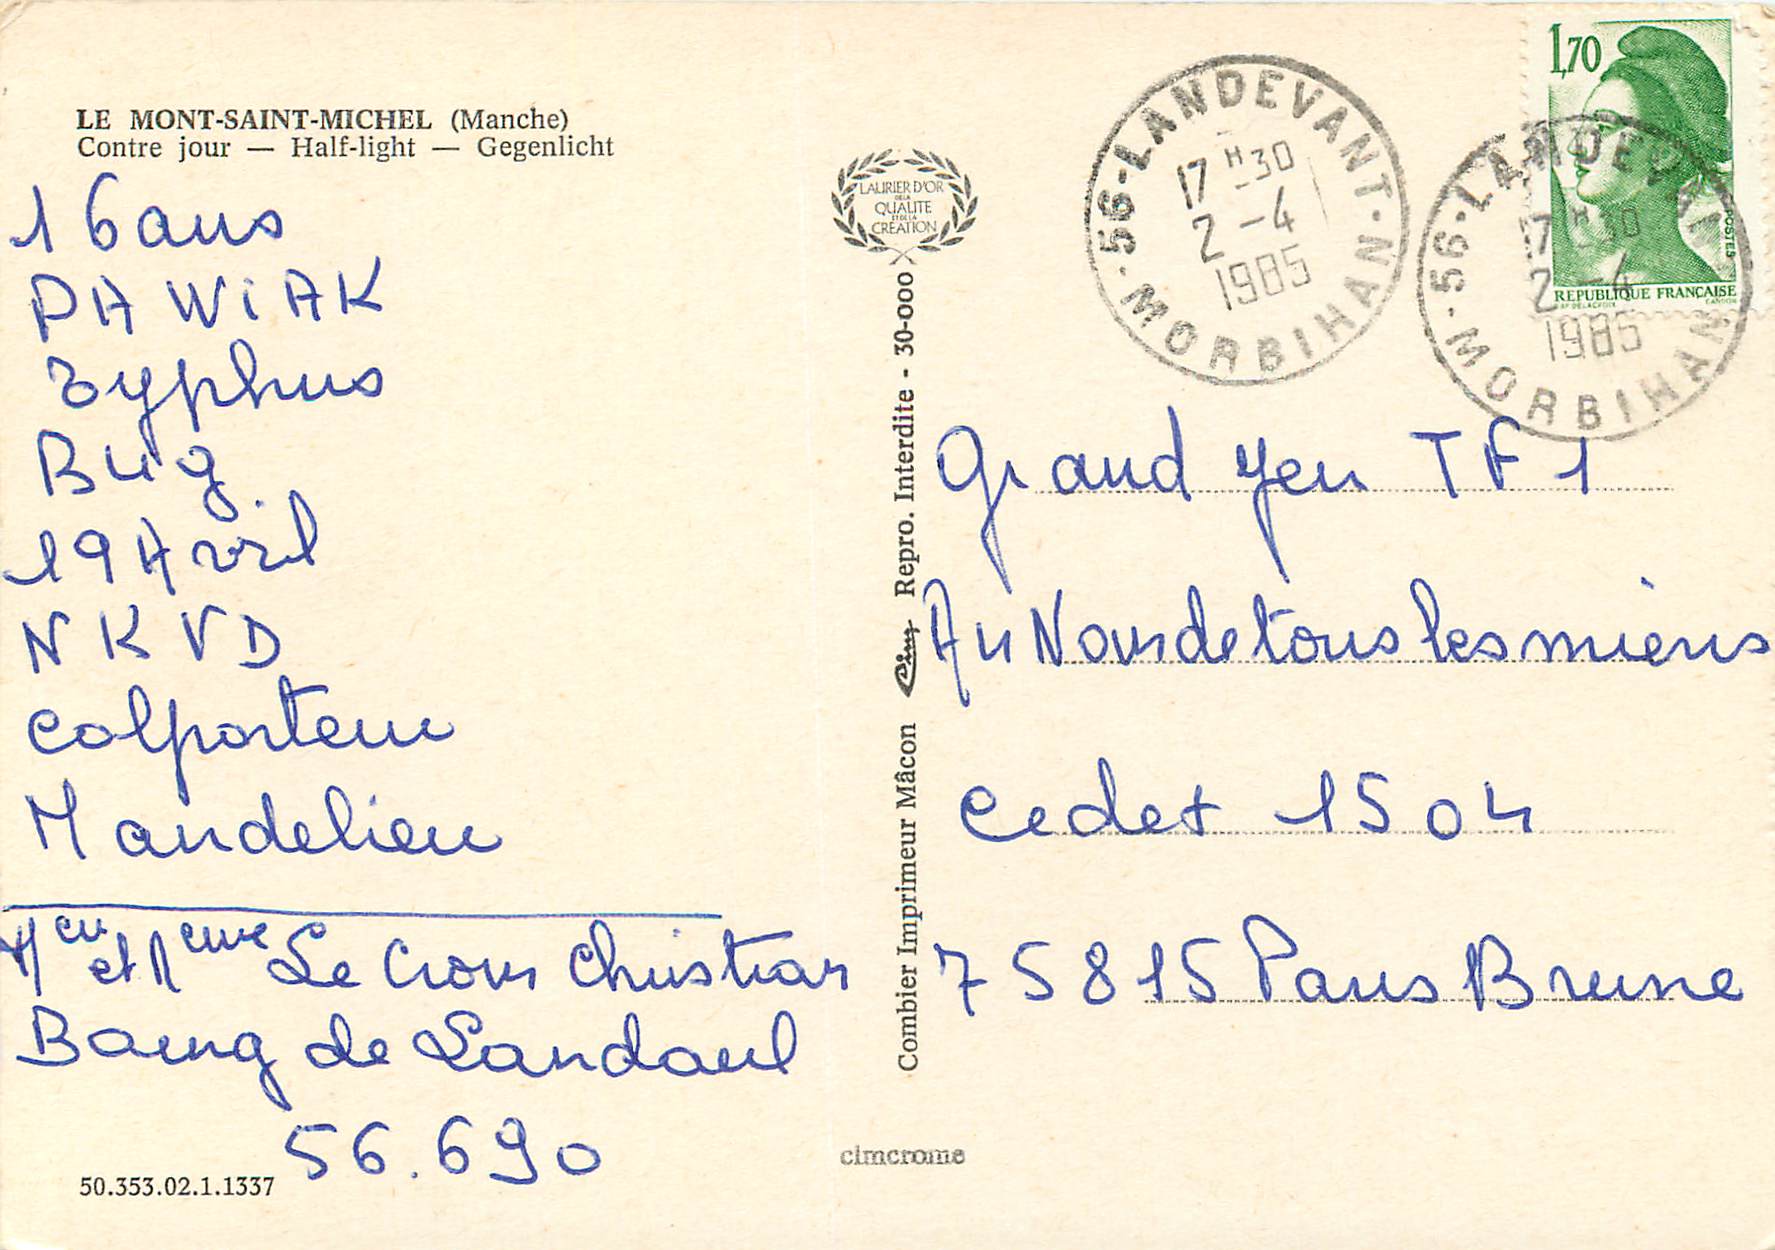 LE MONT-SAINT-MICHEL (Manche)
Contre jour — Half-light — Gegenlicht
16 ans
PAWIAK
Typhus
Bug
19 Avril
NKVD
Colporteur
Mandelieu
Meur et Mme Le Crom Christian
Bourg de Landaul
56.690
50.353.02.1.1337
LAURIER D'OR
DE LA
QUALITE
ET DE LA
CRÉATION
Combier Imprimeur Mâcon Cim Repro. Interdite - 30-000
cimcrome
56-LANDEVANT
17 H 30
2 - 4
1985
MORBIHAN
56-LANDEVANT
17 H 30
2 - 4
1985
MORBIHAN
1,70
POSTES
REPUBLIQUE FRANÇAISE
AP. DELACROIX
GANDON
Grand jeu TF1
Au Nom de tous les miens
Cedex 1504
75815 Paris Brune